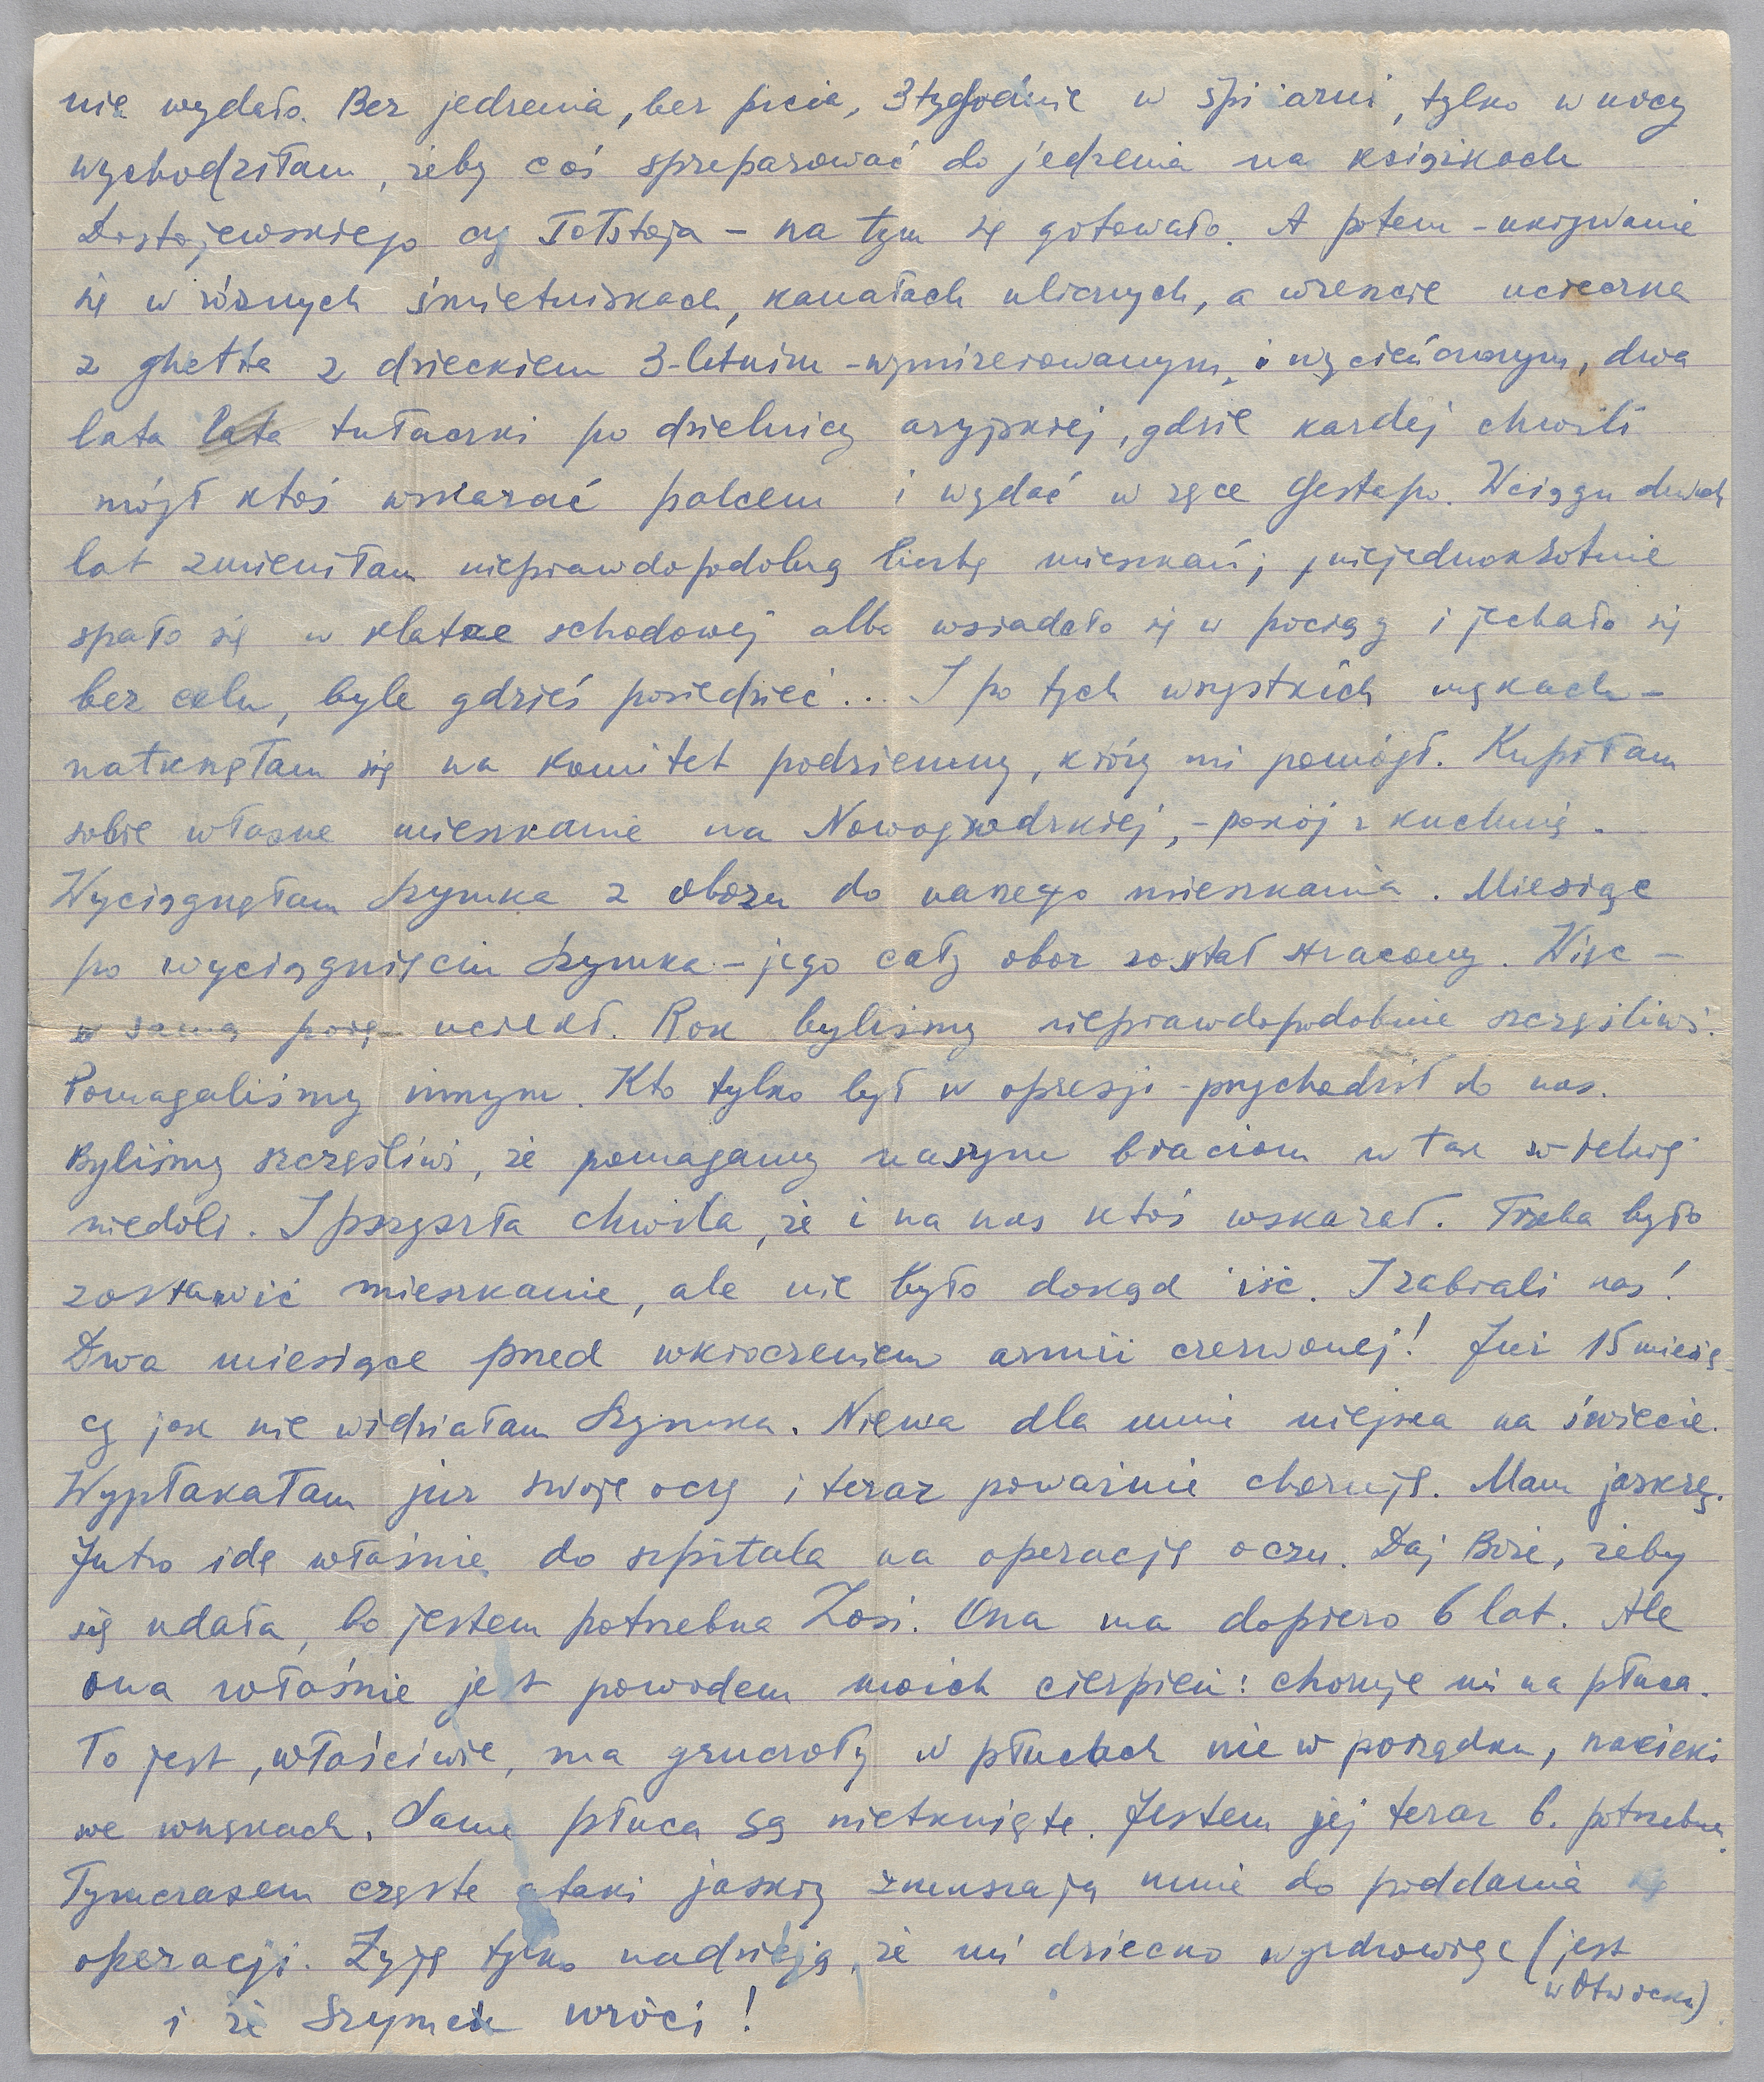 nie wydało. Bez jedzenia, bez picia, 3 tygodnie w śpiżarni, tylko w nocy
wychodziłam, żeby coś spreparować do jedzenia na książkach
Dostojewskiego czy Tołstoja – na tym się gotowało. A potem – ukrywanie
się w różnych śmietniskach, kanałach ulicznych, a wreszcie ucieczka
z ghetta z dzieckiem 3-letnim – wymizerowanym i wycieńczonym, dwa
lata tułaczki po dzielnicy aryjskiej, gdzie każdej chwili
mógł ktoś wskazać palcem i wydać w ręce Gestapo. W ciągu dwuch
lat zmieniłam nieprawdopodobną liczbę mieszkań; niejednokrotnie
spało się w klatce schodowej albo wsiadało się w pociąg i jechało się
bez celu, byle gdzieś posiedzieć... I po tych wszystkich mękach –
natknęłam się na Komitet podziemny, który mi pomógł. Kupiłam
sobie własne mieszkanie na Nowogrodzkiej, – pokój z kuchnią.
Wyciągnęłam Szymka z obozu do naszego mieszkania. Miesiąc
po wyciągnięciu Szymka – jego cały oboz został stracony. Więc –
w samą porę uciekł. Rok byliśmy nieprawdopodobnie szczęśliwi.
Pomagaliśmy innym. Kto tylko był w opresji – przychodził do nas.
Byliśmy szczęśliwi, że pomagamy naszym braciom w tak wielkiej
niedoli. I przyszła chwila, że i na nas ktoś wskazał. Trzeba było
zostawić mieszkanie, ale nie było dokąd iść. I zabrali nas!
Dwa miesiące przed wkroczeniem armii czerwonej! Już 15 miesię-
cy jak nie widziałam Szymka. Niema dla mnie miejsca na świecie.
Wypłakałam już swoje oczy i teraz poważnie choruję. Mam jaskrę.
Jutro idę właśnie do szpitala na operację oczu. Daj Boże, żeby
się udała, bo jestem potrzebna Zosi. Ona ma dopiero 6 lat. Ale
ona właśnie jest powodem moich cierpień: choruje mi na płuca.
To jest, właściwie, ma gruczoły w płucach nie w porządku, nacieki
we wnękach. Same płuca są nietknięte. Jestem jej teraz b. potrzebna.
Tymczasem częste ataki jaskry zmuszają mnie do poddania się
operacji. Żyję tylko nadzieją, że mi dziecko wyzdrowieje (jest
w Otwocku)
i że Szymek wróci!